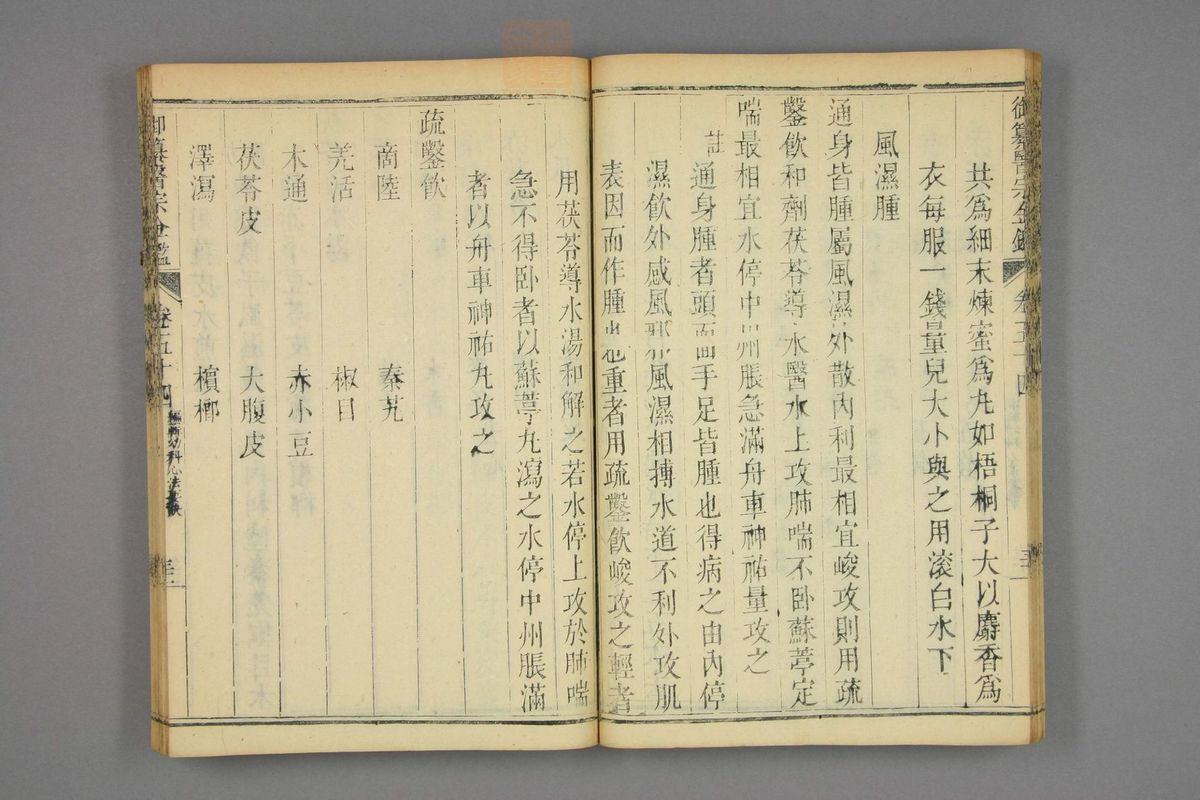 御纂醫宗金鑑 卷五十四
共爲細末煉蜜爲丸如梧桐子大以麝香爲
衣每服一錢量兒大小與之用滾白水下
風濕腫
通身皆腫屬風濕外散內利最相宜峻攻則用疏
鑿飲和劑茯苓導水醫水上攻肺喘不卧蘇葶定
喘最相宜水停中州脹急滿舟車神祐量攻之
註
通身腫者頭面手足皆腫也得病之由內停
濕飲外感風邪風濕相搏水道不利外攻肌
表因而作腫也重者用疏鑿飲峻攻之輕者
用茯苓導水湯和解之若水停上攻於肺喘
急不得卧者以蘇葶丸瀉之水停中州脹滿
者以舟車神祐丸攻之
疏鑿飲
商陸 秦艽
羌活 椒目
木通 赤小豆
茯苓皮 大腹皮
澤瀉 檳榔
御纂醫宗金鑑 卷五十四 編輯幼科心法要訣